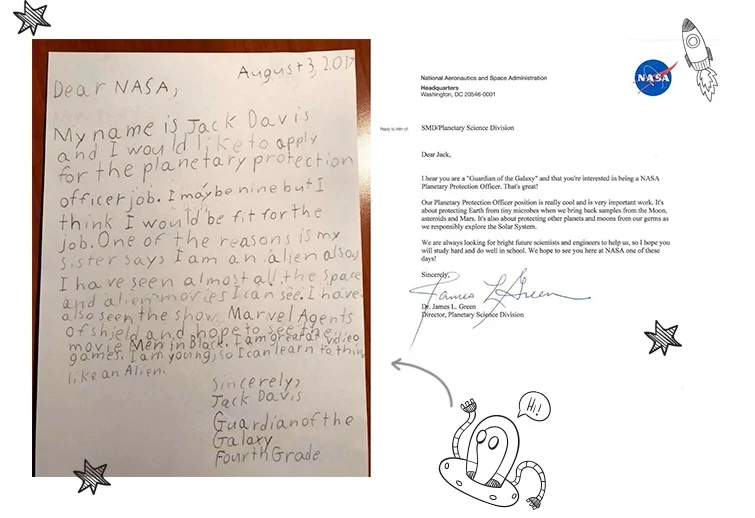 August 3, 2017
Dear NASA,
My name is Jack Davis
and I would like to apply
for the planetary protection
officer job. I may be nine but I
think I would be fit for the
job. One of the reasons is my
sister says I am an alien also
I have seen almost all the space
and alien movies I can see. I have
also seen the show Marvel Agents
of shield and hope to see the
movie Men in Black. I am great at vidieo
games. I am young, so I can learn to think
like an Alien.
Sincerely,
Jack Davis
Guardian of the
Galaxy
Fourth Grade
National Aeronautics and Space Administration
Headquarters
Washington, DC 20546-0001
NASA
Reply to Attn of:
SMD/Planetary Science Division
Dear Jack,
I hear you are a "Guardian of the Galaxy" and that you're interested in being a NASA
Planetary Protection Officer. That's great!
Our Planetary Protection Officer position is really cool and is very important work. It's
about protecting Earth from tiny microbes when we bring back samples from the Moon,
asteroids and Mars. It's also about protecting other planets and moons from our germs as
we responsibly explore the Solar System.
We are always looking for bright future scientists and engineers to help us, so I hope you
will study hard and do well in school. We hope to see you here at NASA one of these
days!
Sincerely,
James L Green
Dr. James L. Green
Director, Planetary Science Division
Hi!